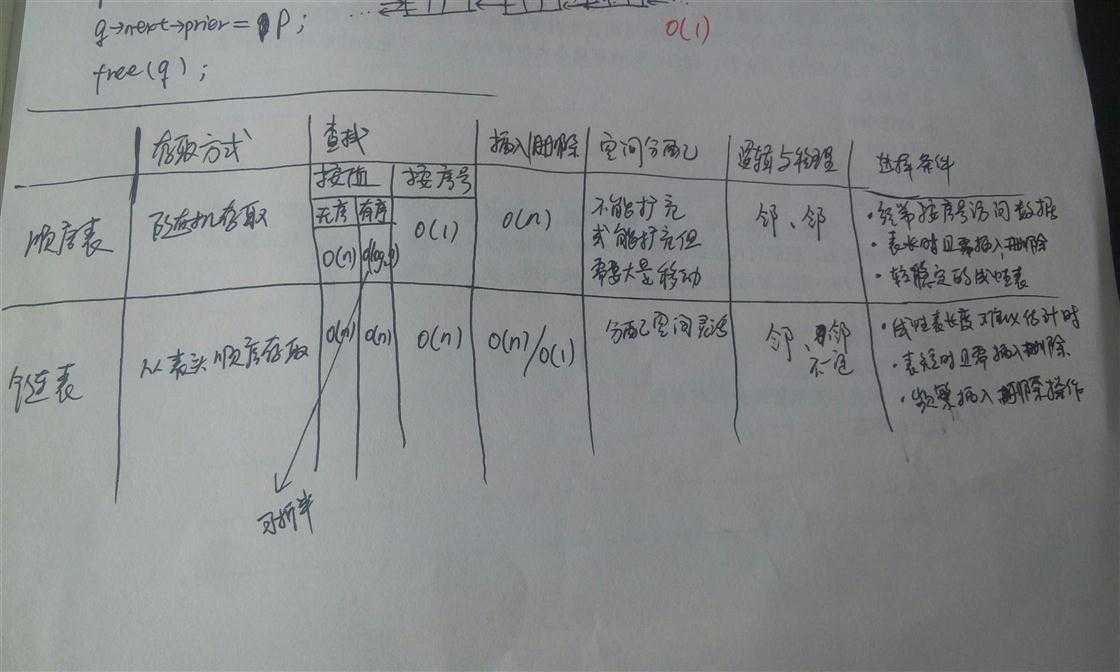 q→next→prior = p;
O(1)
free(q);
存取方式 查找 插入/删除 空间分配 逻辑与物理 选择条件
按值 按序号
无序 有序
顺序表 随机存取 O(n) O(log₂n) O(1) O(n)
不能扩充
或能扩充但
需要大量移动
邻、邻
·经常按序号访问数据
·表长时且需插入,删除
·较稳定的线性表
链表 从表头顺序存取 O(n) O(n) O(n) O(n)/O(1) 分配空间灵活
邻、邻
不一定
·线性表长度难以估计时
·表短时且需插入删除
·频繁插入删除操作
可折半